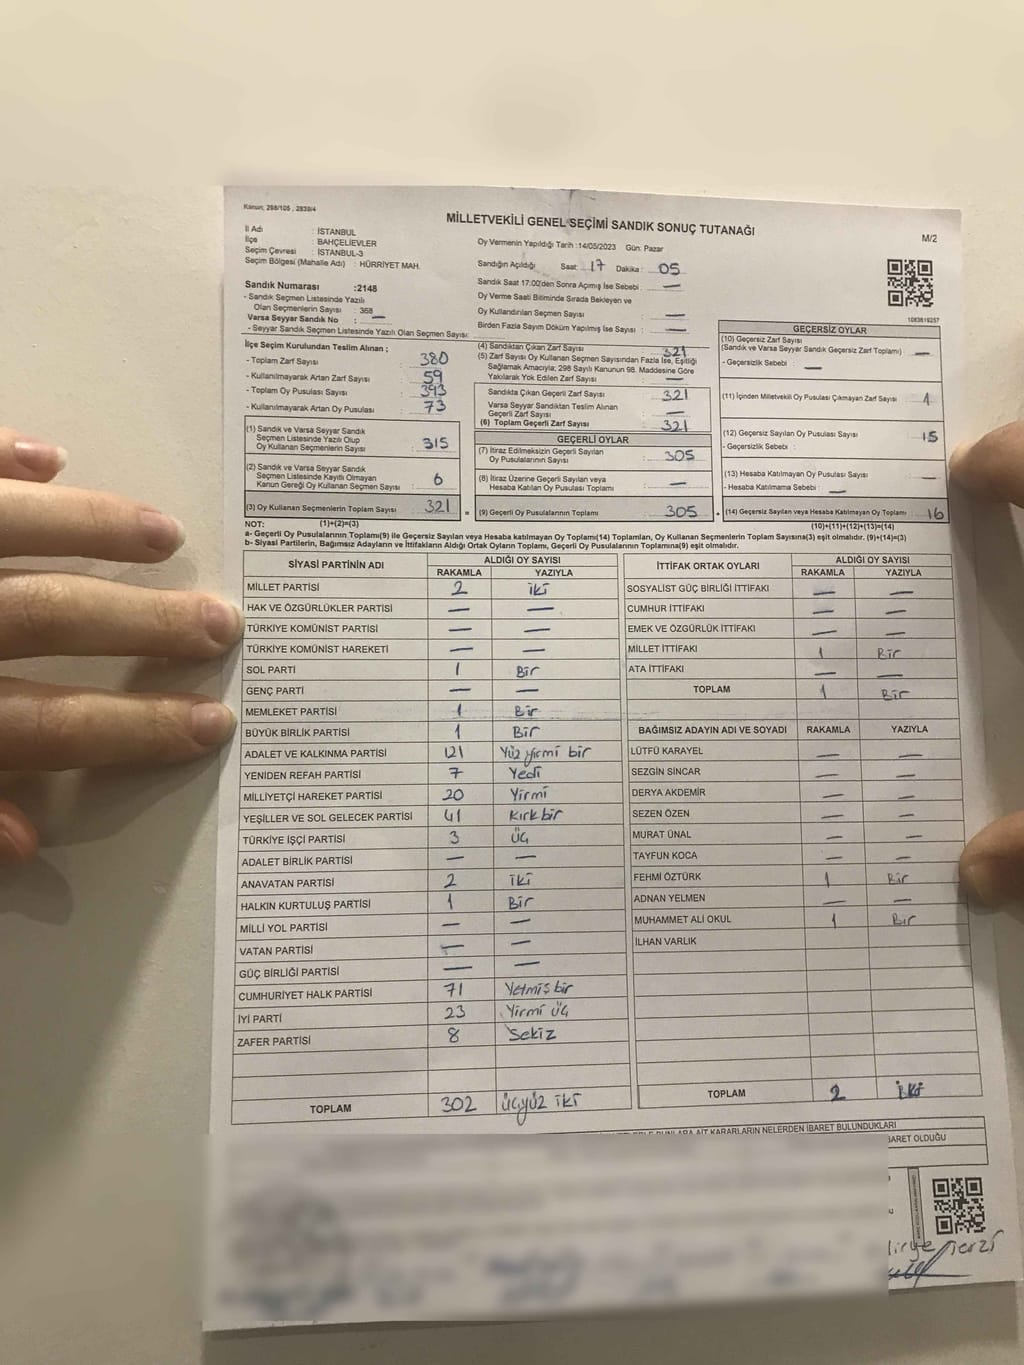 Kanun; 298/105 , 2839/4
MİLLETVEKİLİ GENEL SEÇİMİ SANDIK SONUÇ TUTANAĞI
M/2
İl Adı : İSTANBUL
İlçe : BAHÇELİEVLER
Seçim Çevresi : İSTANBUL-3
Seçim Bölgesi (Mahalle Adı) : HÜRRİYET MAH.
Sandık Numarası :2148
- Sandık Seçmen Listesinde Yazılı
Olan Seçmenlerin Sayısı : 368
Varsa Seyyar Sandık No : —
- Seyyar Sandık Seçmen Listesinde Yazılı Olan Seçmen Sayısı:
Oy Vermenin Yapıldığı Tarih :14/05/2023 Gün: Pazar
Sandığın Açıldığı Saat: 17 Dakika : 05
Sandık Saat 17:00'den Sonra Açımış İse Sebebi : —
Oy Verme Saati Bitiminde Sırada Bekleyen ve
Oy Kullandırılan Seçmen Sayısı : —
Birden Fazla Sayım Döküm Yapılmış İse Sayısı : —
1083819257
İlçe Seçim Kurulundan Teslim Alınan ;
- Toplam Zarf Sayısı : 380
- Kullanılmayarak Artan Zarf Sayısı : 59
- Toplam Oy Pusulası Sayısı : 393
- Kullanılmayarak Artan Oy Pusulası : 73
(1) Sandık ve Varsa Seyyar Sandık
Seçmen Listesinde Yazılı Olup
Oy Kullanan Seçmenlerin Sayısı : 315
(2) Sandık ve Varsa Seyyar Sandık
Seçmen Listesinde Kayıtlı Olmayan
Kanun Gereği Oy Kullanan Seçmen Sayısı : 6
(3) Oy Kullanan Seçmenlerin Toplam Sayısı : 321 =
(4) Sandıktan Çıkan Zarf Sayısı : 321
(5) Zarf Sayısı Oy Kullanan Seçmen Sayısından Fazla İse, Eşitliği
Sağlamak Amacıyla; 298 Sayılı Kanunun 98. Maddesine Göre
Yakılarak Yok Edilen Zarf Sayısı : —
Sandıkta Çıkan Geçerli Zarf Sayısı : 321
Varsa Seyyar Sandıktan Teslim Alınan
Geçerli Zarf Sayısı : —
(6) Toplam Geçerli Zarf Sayısı : 321
GEÇERLİ OYLAR
(7) İtiraz Edilmeksizin Geçerli Sayılan
Oy Pusulalarının Sayısı : 305
(8) İtiraz Üzerine Geçerli Sayılan veya
Hesaba Katılan Oy Pusulası Toplamı : —
(9) Geçerli Oy Pusulalarının Toplamı : 305 +
GEÇERSİZ OYLAR
(10) Geçersiz Zarf Sayısı
(Sandık ve Varsa Seyyar Sandık Geçersiz Zarf Toplamı) : —
- Geçersizlik Sebebi : —
(11) İçinden Milletvekili Oy Pusulası Çıkmayan Zarf Sayısı : 1
(12) Geçersiz Sayılan Oy Pusulası Sayısı : 15
- Geçersizlik Sebebi :
(13) Hesaba Katılmayan Oy Pusulası Sayısı : —
- Hesaba Katılmama Sebebi : —
(14) Geçersiz Sayılan veya Hesaba Katılmayan Oy Toplamı : 16
NOT: (1)+(2)=(3)
(10)+(11)+(12)+(13)=(14)
a- Geçerli Oy Pusulalarının Toplamı(9) ile Geçersiz Sayılan veya Hesaba katılmayan Oy Toplamı(14) Toplamları, Oy Kullanan Seçmenlerin Toplam Sayısına(3) eşit olmalıdır. (9)+(14)=(3)
b- Siyasi Partilerin, Bağımsız Adayların ve İttifakların Aldığı Ortak Oyların Toplamı, Geçerli Oy Pusulalarının Toplamına(9) eşit olmalıdır.
SİYASİ PARTİNİN ADI ALDIĞI OY SAYISI
RAKAMLA YAZIYLA
MİLLET PARTİSİ 2 iki
HAK VE ÖZGÜRLÜKLER PARTİSİ — —
TÜRKİYE KOMÜNİST PARTİSİ — —
TÜRKİYE KOMÜNİST HAREKETİ — —
SOL PARTİ 1 Bir
GENÇ PARTİ — —
MEMLEKET PARTİSİ 1 Bir
BÜYÜK BİRLİK PARTİSİ 1 Bir
ADALET VE KALKINMA PARTİSİ 121 Yüz yirmi bir
YENİDEN REFAH PARTİSİ 7 Yedi
MİLLİYETÇİ HAREKET PARTİSİ 20 Yirmi
YEŞİLLER VE SOL GELECEK PARTİSİ 41 Kırk bir
TÜRKİYE İŞÇİ PARTİSİ 3 Üç
ADALET BİRLİK PARTİSİ — —
ANAVATAN PARTİSİ 2 iki
HALKIN KURTULUŞ PARTİSİ 1 Bir
MİLLİ YOL PARTİSİ — —
VATAN PARTİSİ — —
GÜÇ BİRLİĞİ PARTİSİ — —
CUMHURİYET HALK PARTİSİ 71 Yetmiş bir
İYİ PARTİ 23 Yirmi üç
ZAFER PARTİSİ 8 Sekiz
TOPLAM 302 üçyüz iki
İTTİFAK ORTAK OYLARI ALDIĞI OY SAYISI
RAKAMLA YAZIYLA
SOSYALİST GÜÇ BİRLİĞİ İTTİFAKI — —
CUMHUR İTTİFAKI — —
EMEK VE ÖZGÜRLÜK İTTİFAKI — —
MİLLET İTTİFAKI 1 Bir
ATA İTTİFAKI — —
TOPLAM 1 Bir
BAĞIMSIZ ADAYIN ADI VE SOYADI RAKAMLA YAZIYLA
LÜTFÜ KARAYEL — —
SEZGİN SİNCAR — —
DERYA AKDEMİR — —
SEZEN ÖZEN — —
MURAT ÜNAL — —
TAYFUN KOCA — —
FEHMİ ÖZTÜRK 1 Bir
ADNAN YELMEN — —
MUHAMMET ALİ OKUL 1 Bir
İLHAN VARLIK
TOPLAM 2 İki
AİT KARARLARIN NELERDEN İBARET BULUNDUKLARI
BARET OLDUĞU